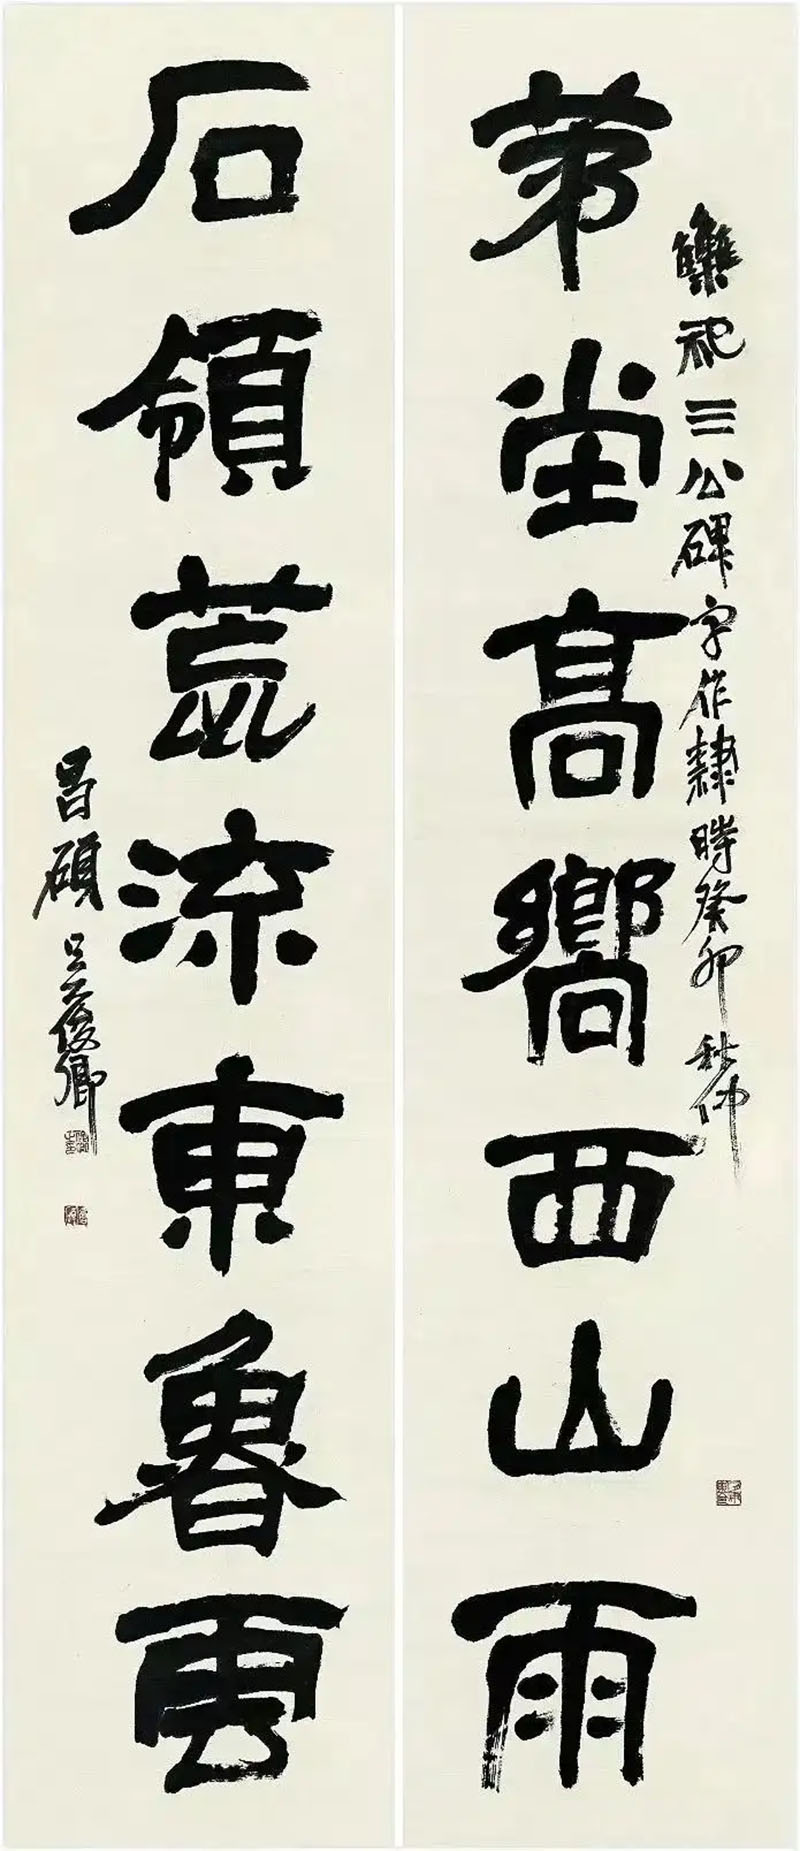 雧祀三公碑字作隸時癸卯秋仲
苐堂高嚮西山雨
石領荒流東魯雲
昌碩吳俊卿